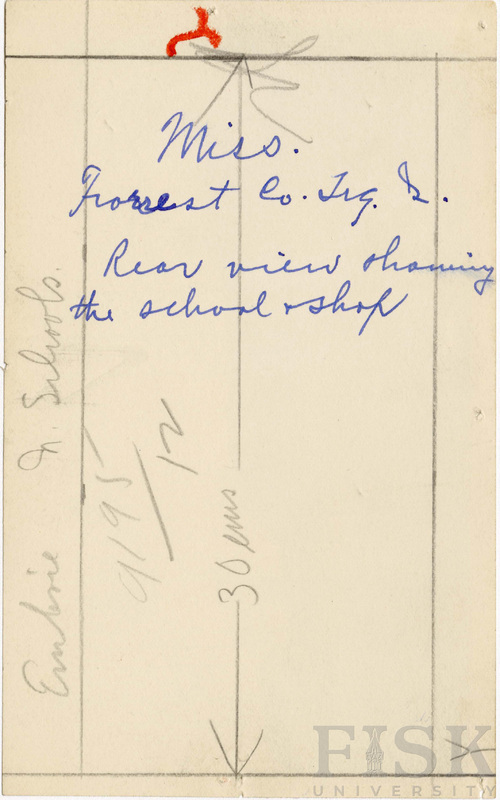 Miss.
Forrest Co. Trg. S.
Rear view showing
the school & shop
N. Schools.
9195
12
30 ems
FISK
UNIVERSITY